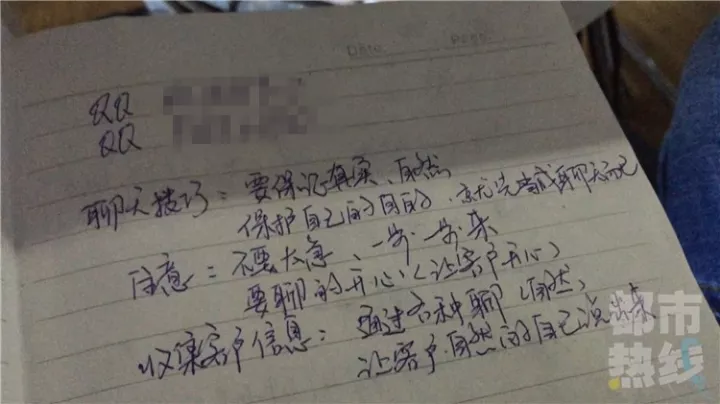 Date
Page
QQ
QQ
聊天技巧：要保证真实、自然
保护自己的目的、就先当成聊天而已
注意：不要太急、一步一步来
要聊的开心（让客户开心）
收集客户信息：通过各种聊（自然，
让客户自然的自己说出来
都市
热线